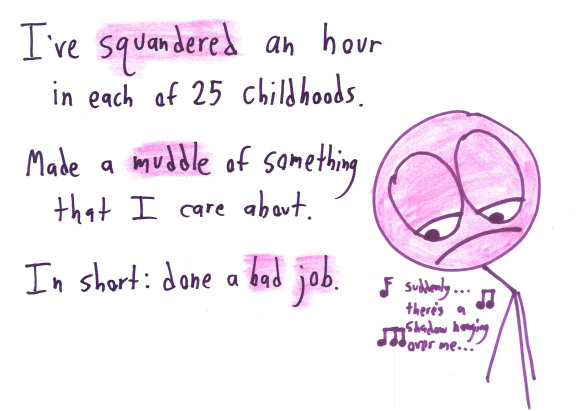 I've squandered an hour
in each of 25 childhoods.
Made a muddle of something
that I care about.
In short: done a bad job.
suddenly...
there's a
shadow hanging
over me...